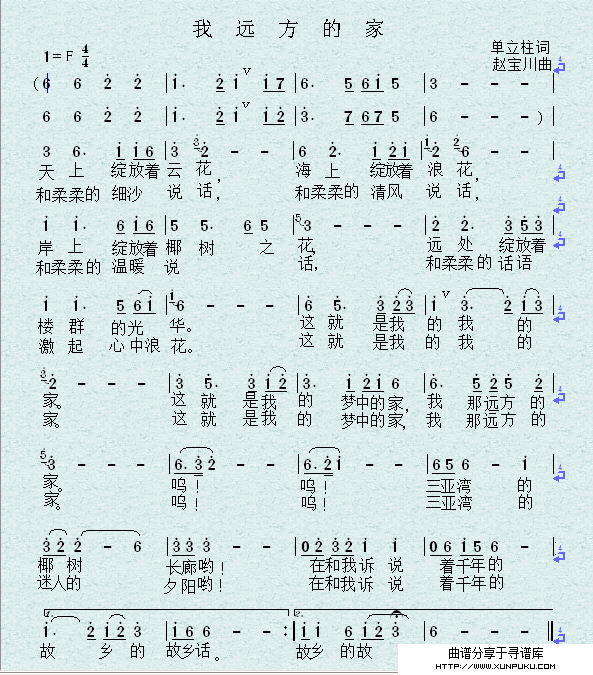 我远方的家
1=F 4/4
单立柱词
赵宝川曲
(6 6 2 2 | 1. 2 1 V 1 7 | 6. 5 6 1 5 | 3 - - -
6 6 2 2 | 1. 2 1 V 1 2 | 3. 7 6 7 5 | 6 - - - )
3 6. 1 1 6 | 3 2 - - | 6 2. 1 2 1 | 1 2 2 6 - -
天上 绽放着 云花, 海上 绽放着 浪花,
和柔柔的 细沙 说话, 和柔柔的 清风 说话,
1 1 6 1 6 | 5 5. 6 5 | 5 3 - - - | 2 2. 3 5 3
岸上 绽放着 椰树 之 花, 远处 绽放着
和柔柔的 温暖 说 话, 和柔柔的 话语
1 1. 5 6 1 | 1 6 - - - | 6 5. 3 2 3 | 1 V 3. 2 1 3
楼群 的光 华。 这就 是我 的我 的
激起 心中浪 花。 这就 是我 的我 的
3 2 - - - | 3 5. 3 1 2 | 3. 1 2 1 6 | 6. 5 2 5 2
家。 这就 是我 的 梦中的家, 我 那远方 的
家。 这就 是我 的 梦中的家, 我 那远方 的
5 3 - - - | 6. 3 2 - - | 6. 2 1 - - | 6 5 6 - 1
家。 呜! 呜! 三亚湾 的
家。 呜! 呜! 三亚湾 的
3 2 2 - 6 | 3 3 3 - - | 0 2 3 2 1 1 | 0 6 1 5 6 -
椰树 长廊哟! 在和我诉 说 着千年的
迷人的 夕阳哟! 在和我诉 说 着千年的
1. 2 1 2 3 | 1 6 1 - - : | 1 6 1 2 2 3 | 6 - - -
故 乡 的 故乡话。 故乡 的故
曲谱分享于寻谱库
HTTP://WWW.XUNPUKU.COM